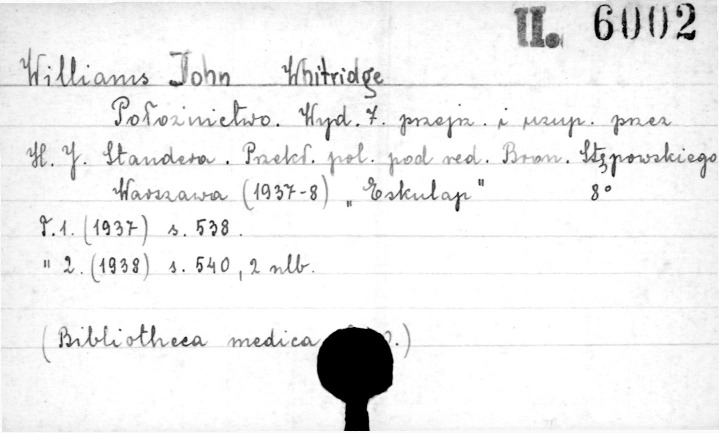 II. 6002
Williams John Whitridge
Położnictwo. Wyd. 7. przejrz. i uzup. przez
H. J. Standera. Przekł. pol. pod red. Bron. Stępowskiego
Warszawa (1937-8) „Eskulap" 8°
T. 1. (1937) s. 538.
" 2. (1938) s. 540, 2 nlb.
(Bibliotheca medica